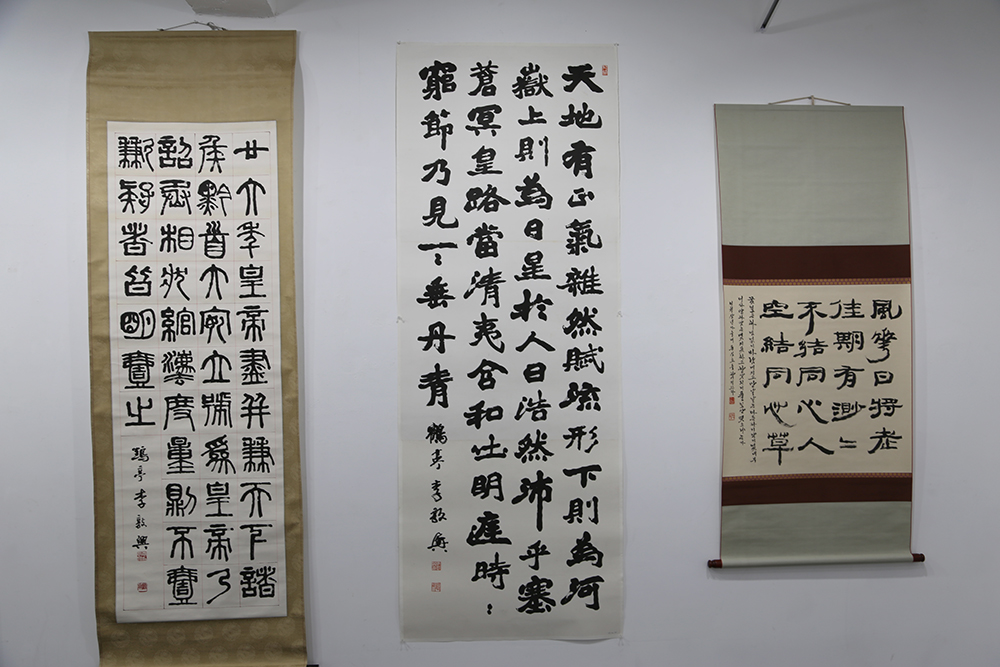 廿六年皇帝盡并兼天下諸
侯黔首大安立號爲皇帝乃
詔丞相狀綰灋度量則不壹
歉疑者皆明壹之
鶴亭 李敦興
天地有正氣雜然賦流形下則為河
嶽上則為日星於人曰浩然沛乎塞
蒼冥皇路當清夷含和吐明庭時〻
窮節乃見一〻垂丹青
鶴亭 李敦興
風花日將老
佳期有渺〻
不結同心人
空結同心草